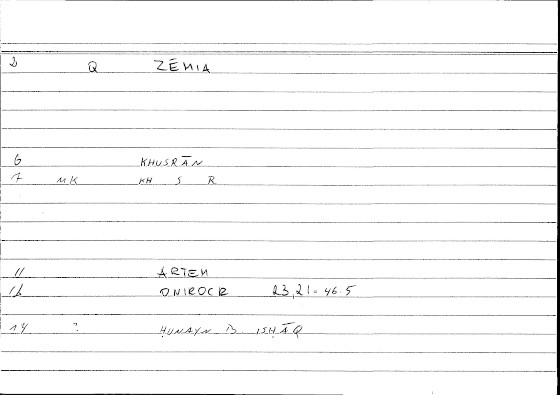 2 Q ZĒMIA
6 KHUSRĀN
7 MK KH S R
11 ARTEM
12 ONIROCR 23,21 = 46.5
14 ? ḤUNAYN B. ISḤĀQ